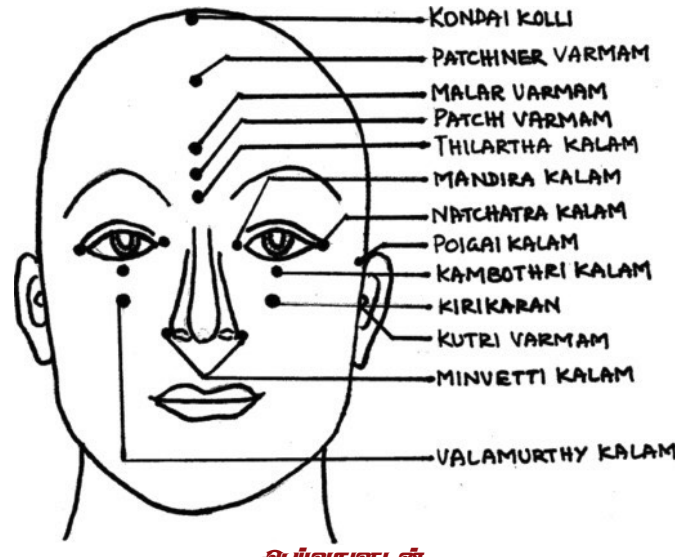 KONDAI KOLLI
PATCHINER VARMAM
MALAR VARMAM
PATCHI VARMAM
THILARTHA KALAM
MANDIRA KALAM
NATCHATRA KALAM
POIGAI KALAM
KAMBOTHRI KALAM
KIRIKARAN
KUTRI VARMAM
MINVETTI KALAM
VALAMURTHY KALAM